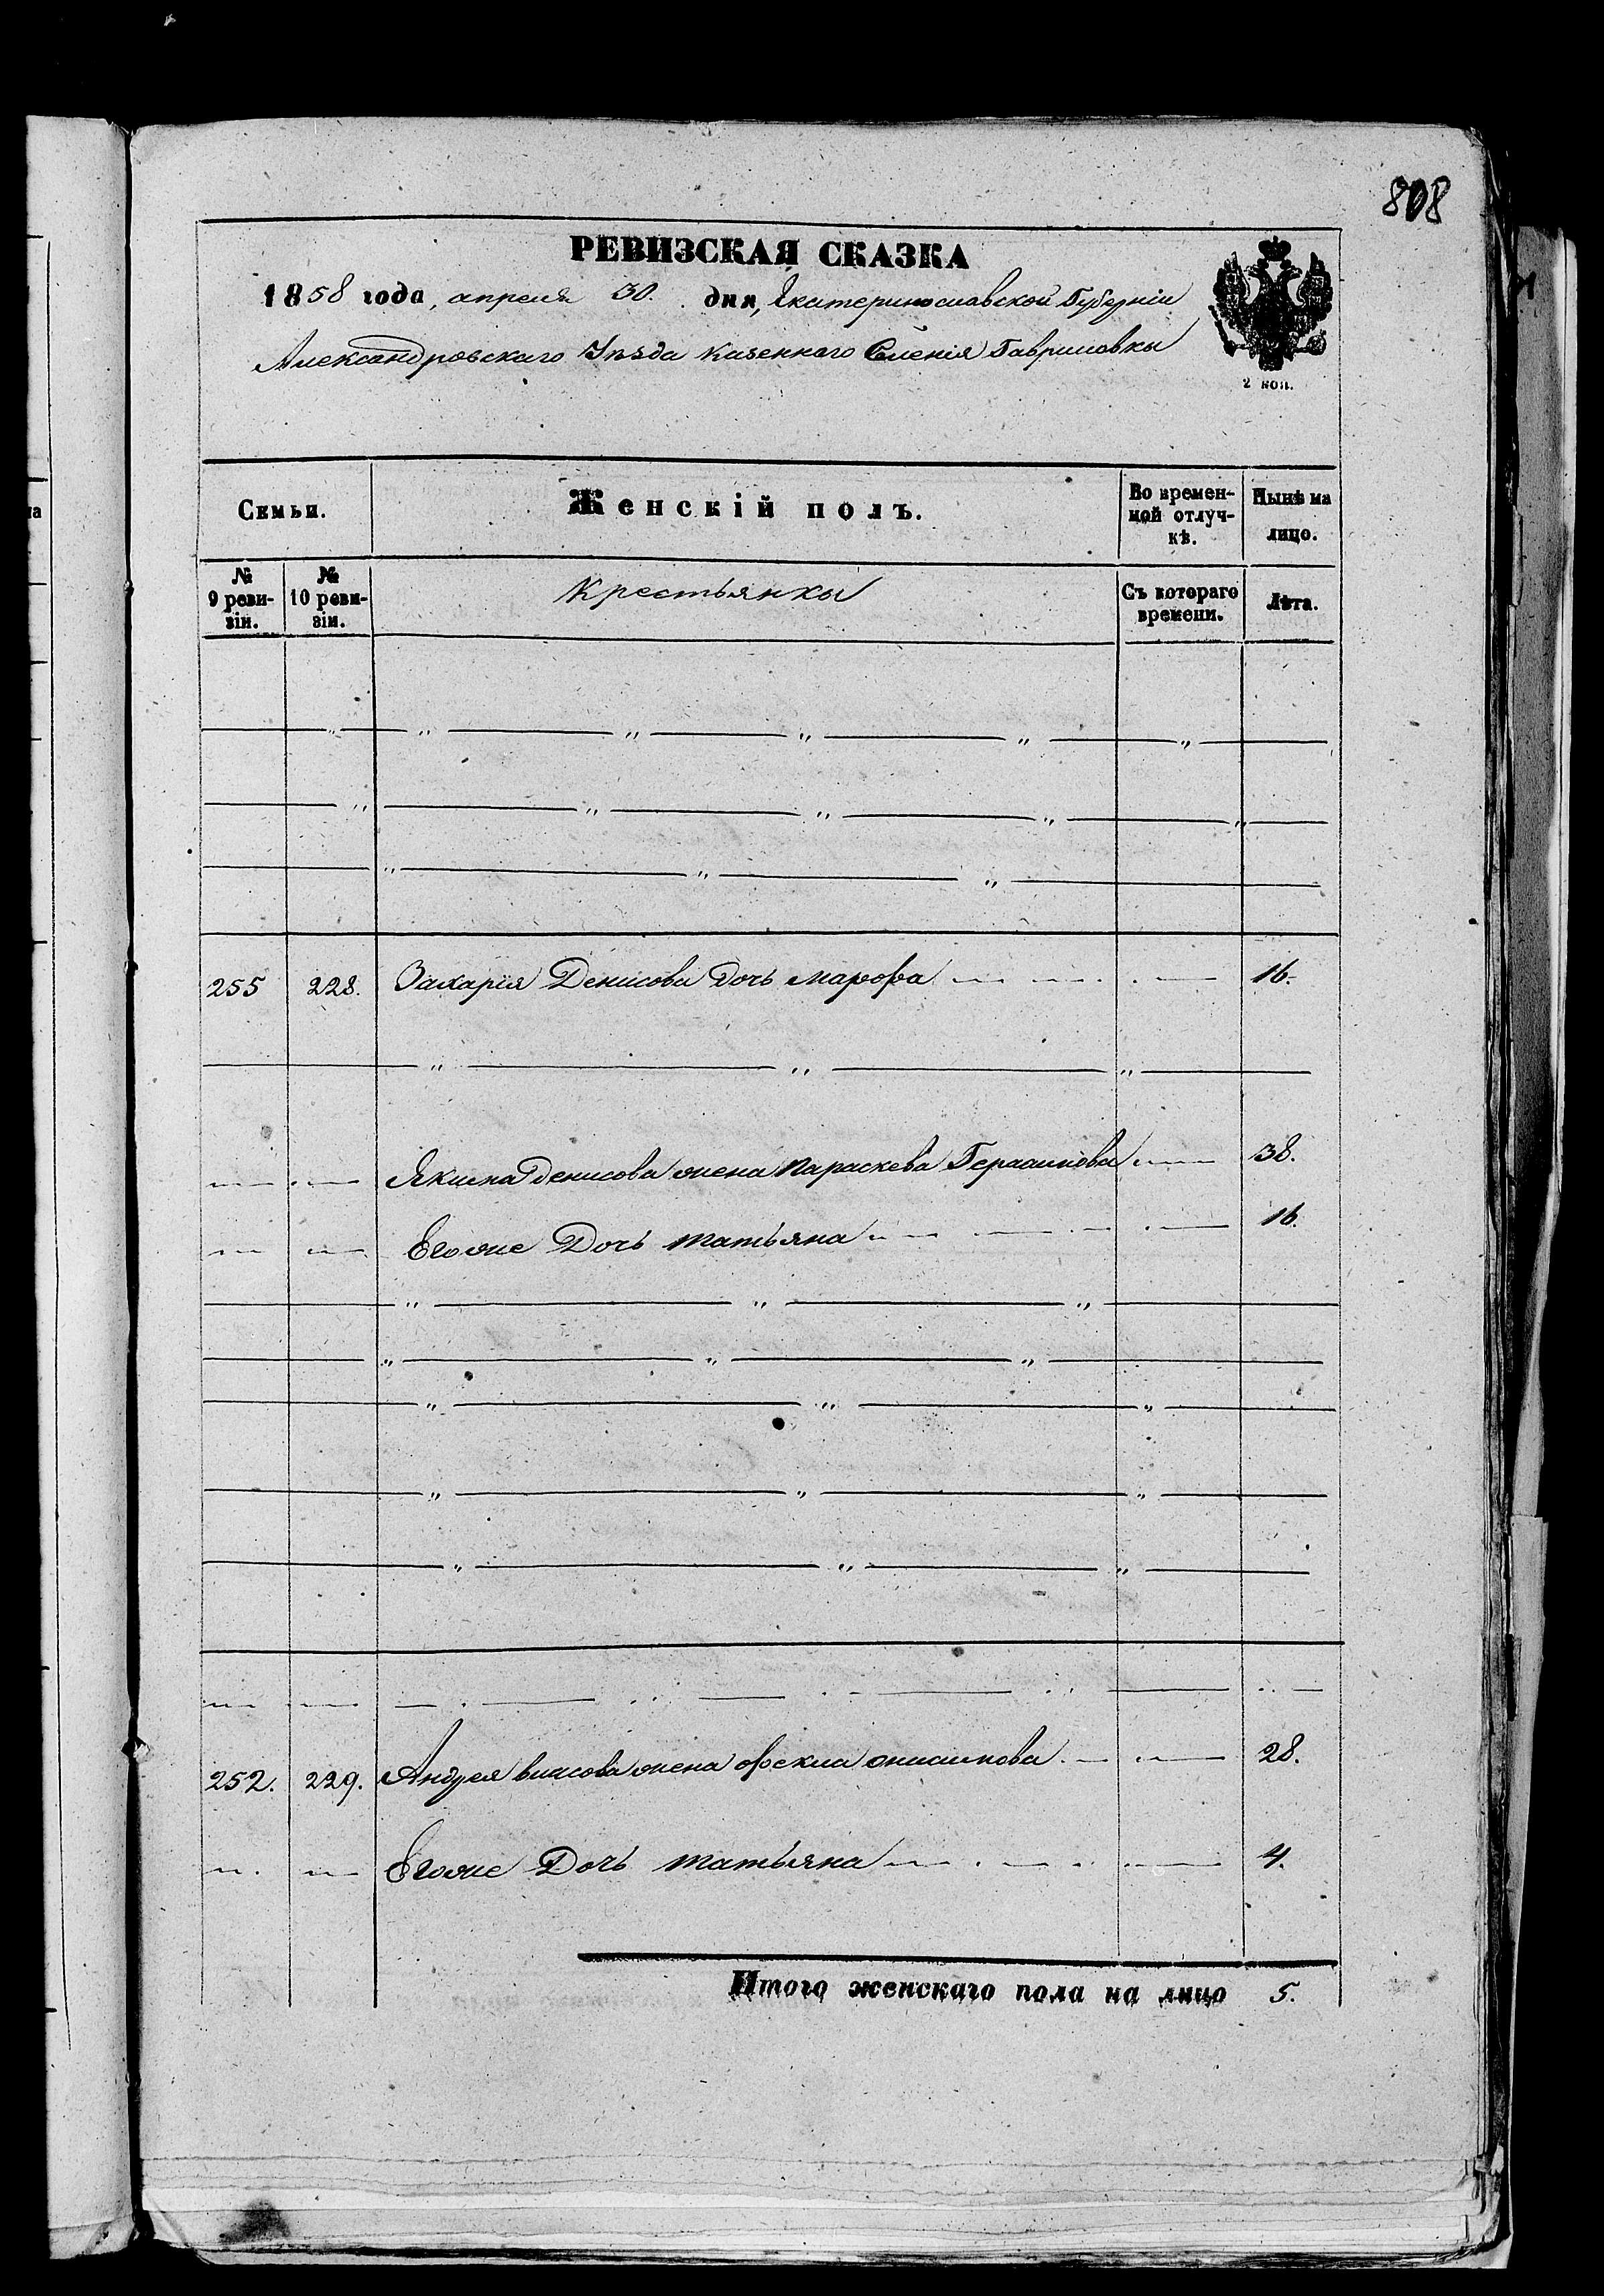 808
РЕВИЗСКАЯ СКАЗКА
1858 года, апреля 30. дня, Екатеринославской Губерніи
Александровскаго Уезда казеннаго Селенія Гавриловки
2 коп.
Семьи.
Женскій полъ.
Во времен-
ной отлуч-
кѣ.
Нынѣ на
лицо.
№
9 реви-
зіи.
№
10 реви-
зіи.
Крестьянки
Съ котораго
времени.
Лѣта.
255 228. Захарія Денисова Дочь Марфа 16.
Якима Денисова жена Параскева Герасимова 38.
Егоже Дочь татьяна 16.
252. 229. Андрея власова жена фекла онисимова 28.
Егоже Дочь татьяна 4.
Итого женскаго пола на лицо 5.